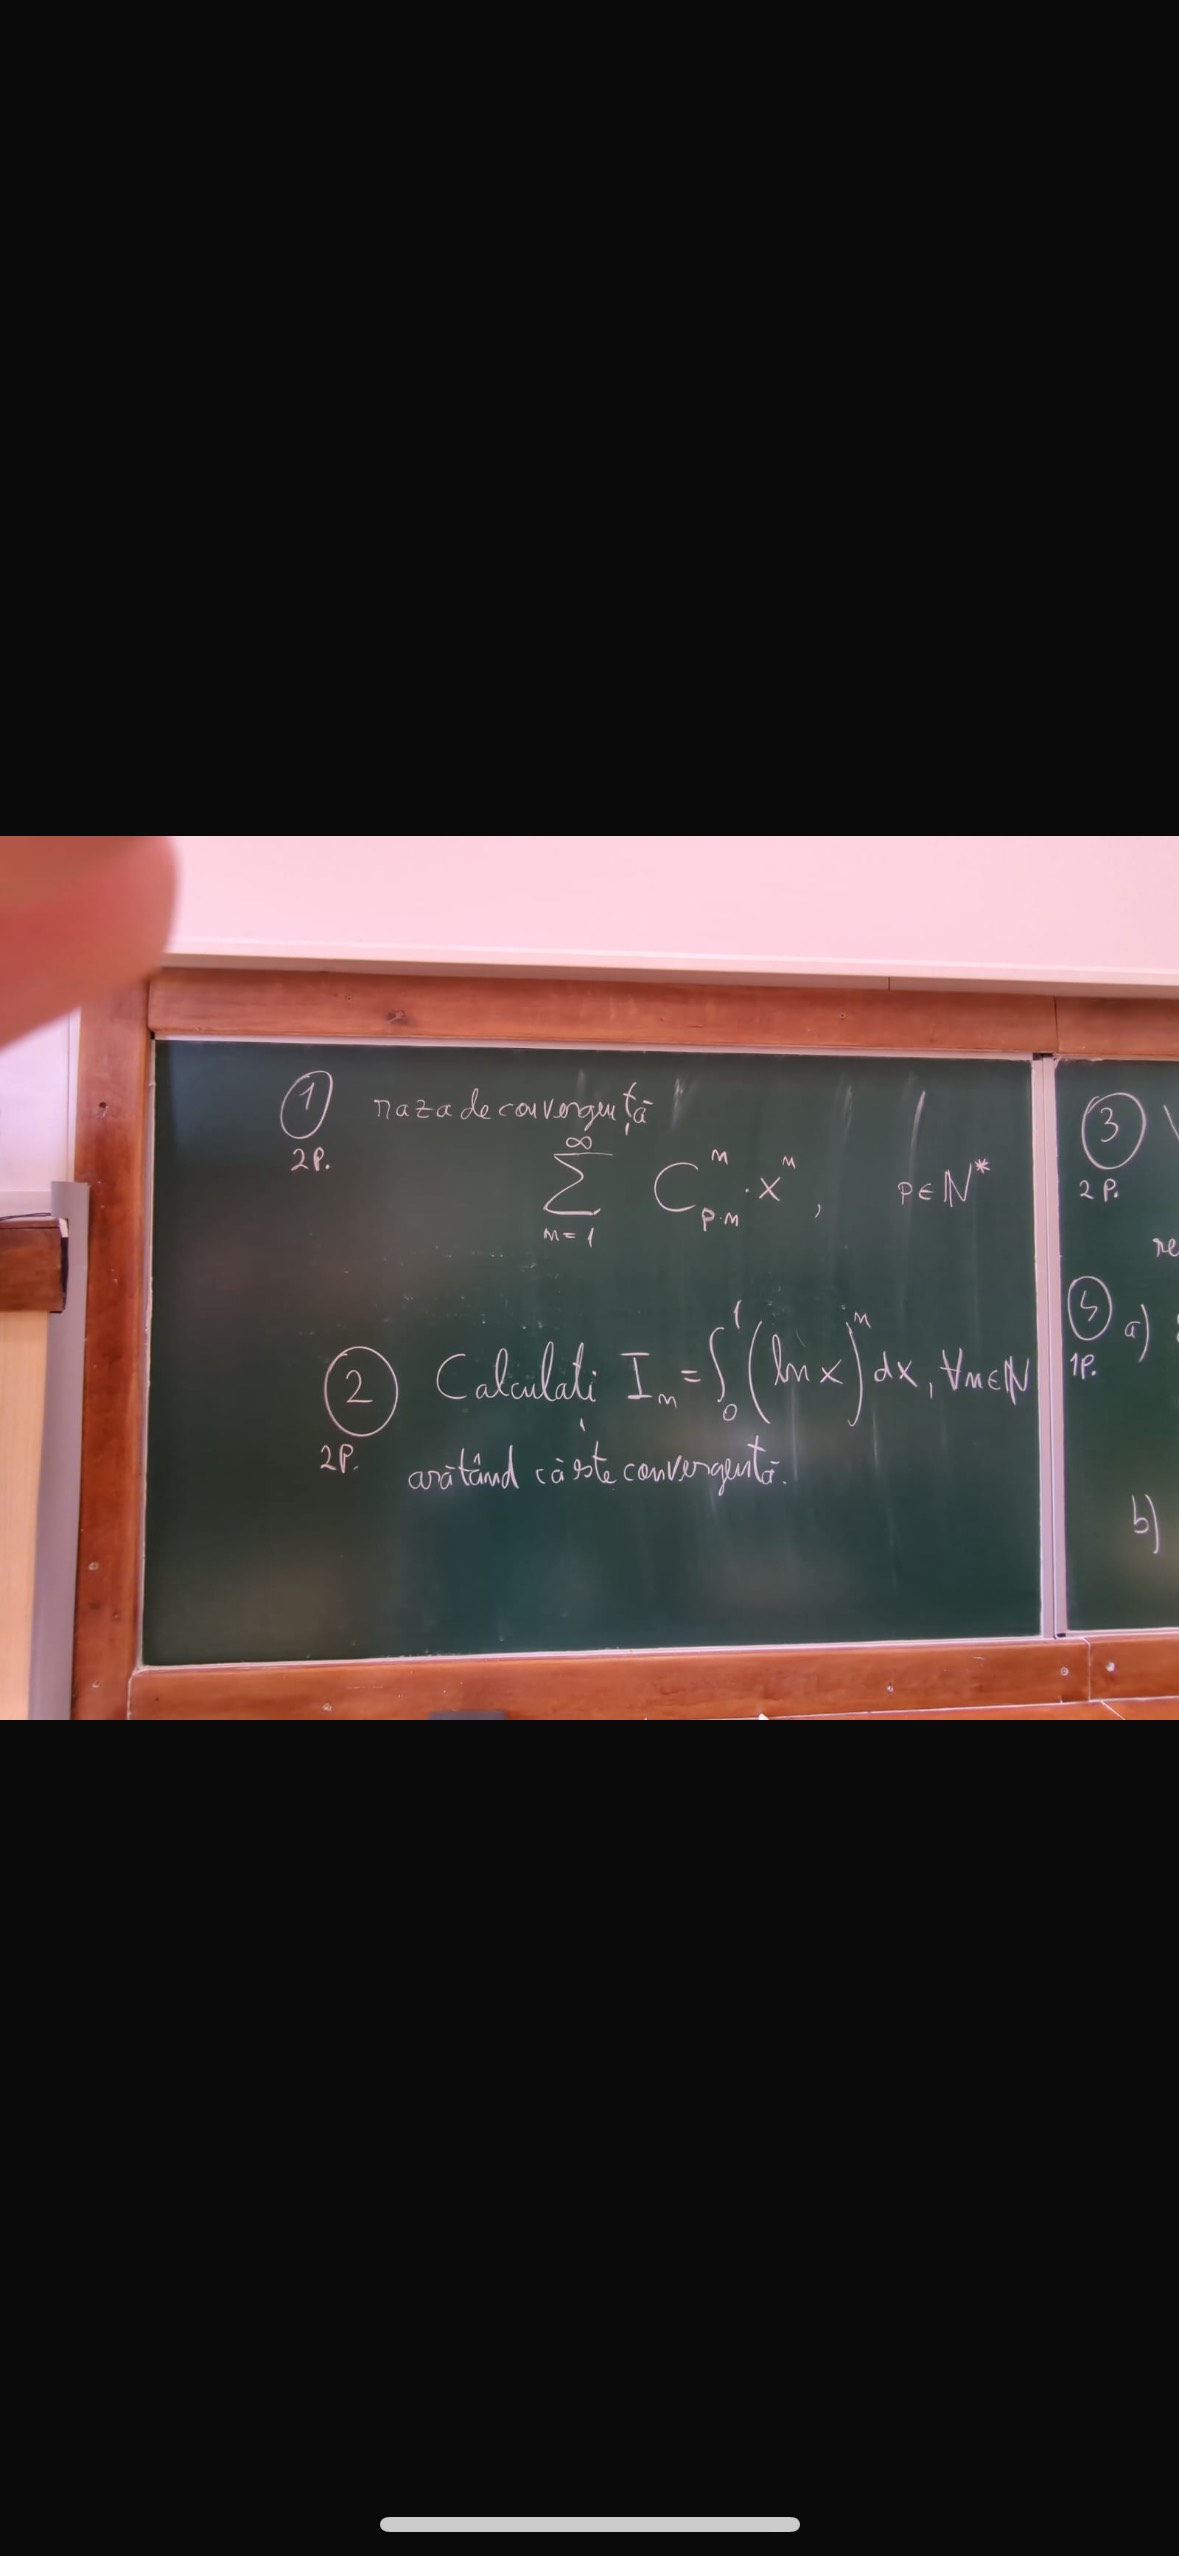 ① raza de convergență
2P.
∞
∑ Cⁿₚ.ₙ · xⁿ, p ∈ ℕ*
n=1
② Calculați Iₙ = ∫₀¹ (ln x)ⁿ dx, ∀n∈ℕ
2P. arătând că este convergentă.
③
2P.
re
1P. a)
b)